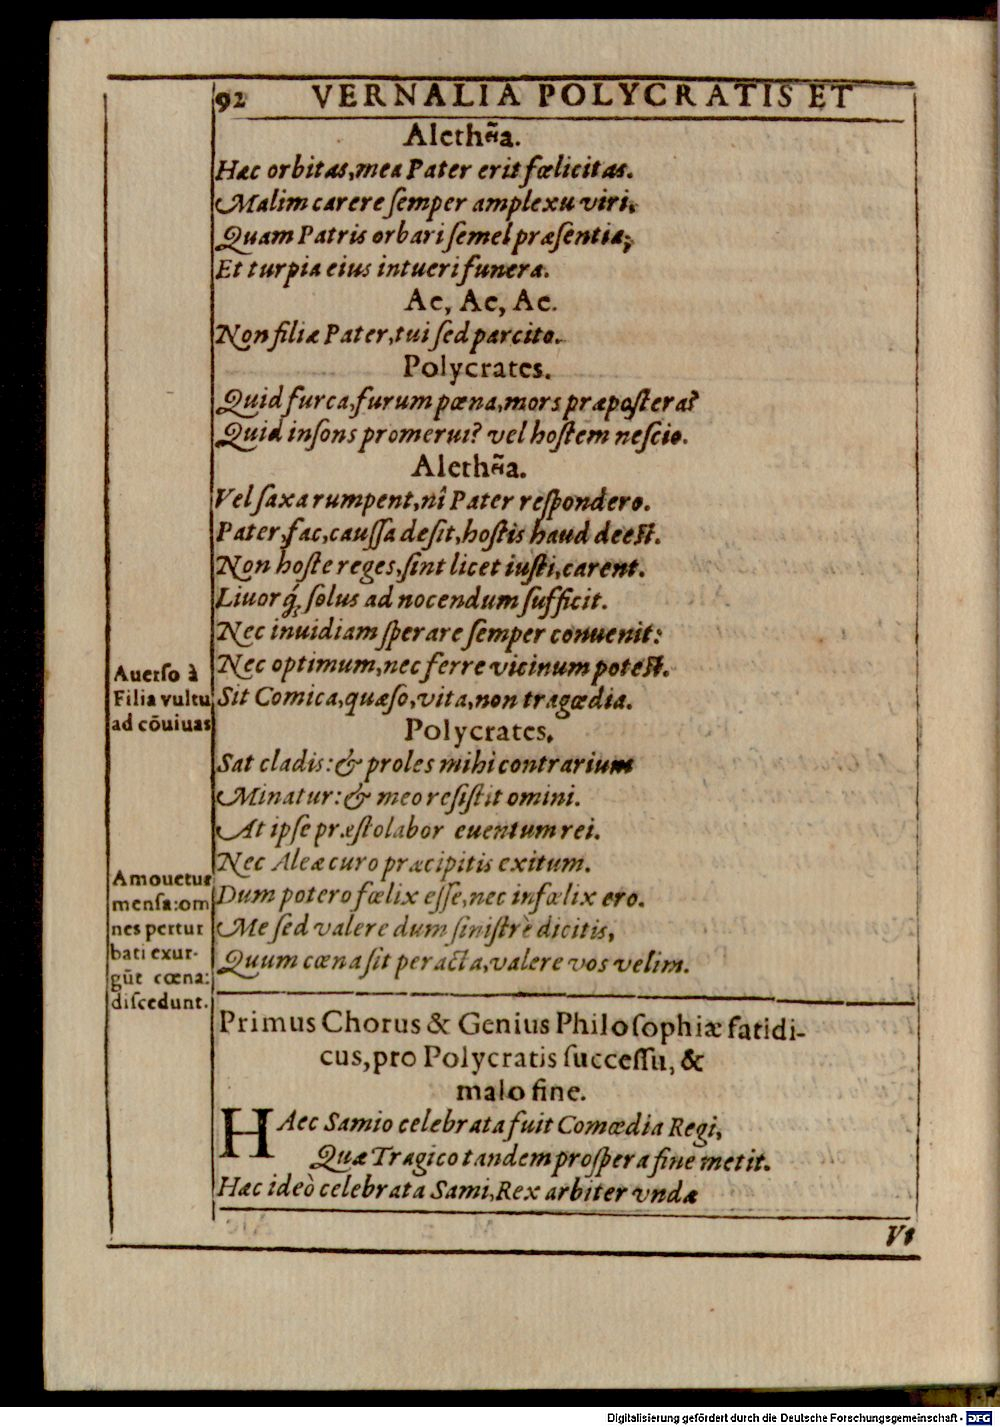 92 VERNALIA POLYCRATIS ET
Alethña.
Hac orbitas, mea Pater erit fœlicitas.
Malim carere ſemper amplexu viri,
Quam Patris orbari ſemel præſentia;
Et turpia eius intueri funera.
Ae, Ae, Ae.
Non filiæ Pater, tui ſed parcito.
Polycrates.
Quid furca, furum pœna, mors præpoſtera?
Quid inſons promerui? vel hoſtem neſcio.
Alethña.
Vel ſaxa rumpent, nî Pater reſpondero.
Pater, fac, cauſſa deſit, hoſtis haud deeſt.
Non hoſte reges, ſint licet iuſti, carent.
Liuorq́; ſolus ad nocendum ſufficit.
Nec inuidiam ſperare ſemper conuenit:
Nec optimum, nec ferre vicinum poteſt.
Sit Comica, quæſo, vita, non tragœdia.
Auerſo à
Filia vultu
ad cõuiuas
Polycrates.
Sat cladis: & proles mihi contrarium
Minatur: & meo reſiſtit omini.
At ipſe præſtolabor euentum rei.
Nec Aleæ curo præcipitis exitum.
Dum potero fœlix eſſe, nec infœlix ero.
Me ſed valere dum ſiniſtrè dicitis,
Quum cœna ſit peracta, valere vos velim.
Amouetur
menſa: om
nes pertur
bati exur-
gũt cœna:
diſcedunt.
Primus Chorus & Genius Philoſophiæ fatidi-
cus, pro Polycratis ſucceſſu, &
malo fine.
HAec Samio celebrata fuit Comœdia Regi,
Quæ Tragico tandem proſpera fine metit.
Hac ideò celebrata Sami, Rex arbiter vndæ
Vt
Digitalisierung gefördert durch die Deutsche Forschungsgemeinschaft - DFG